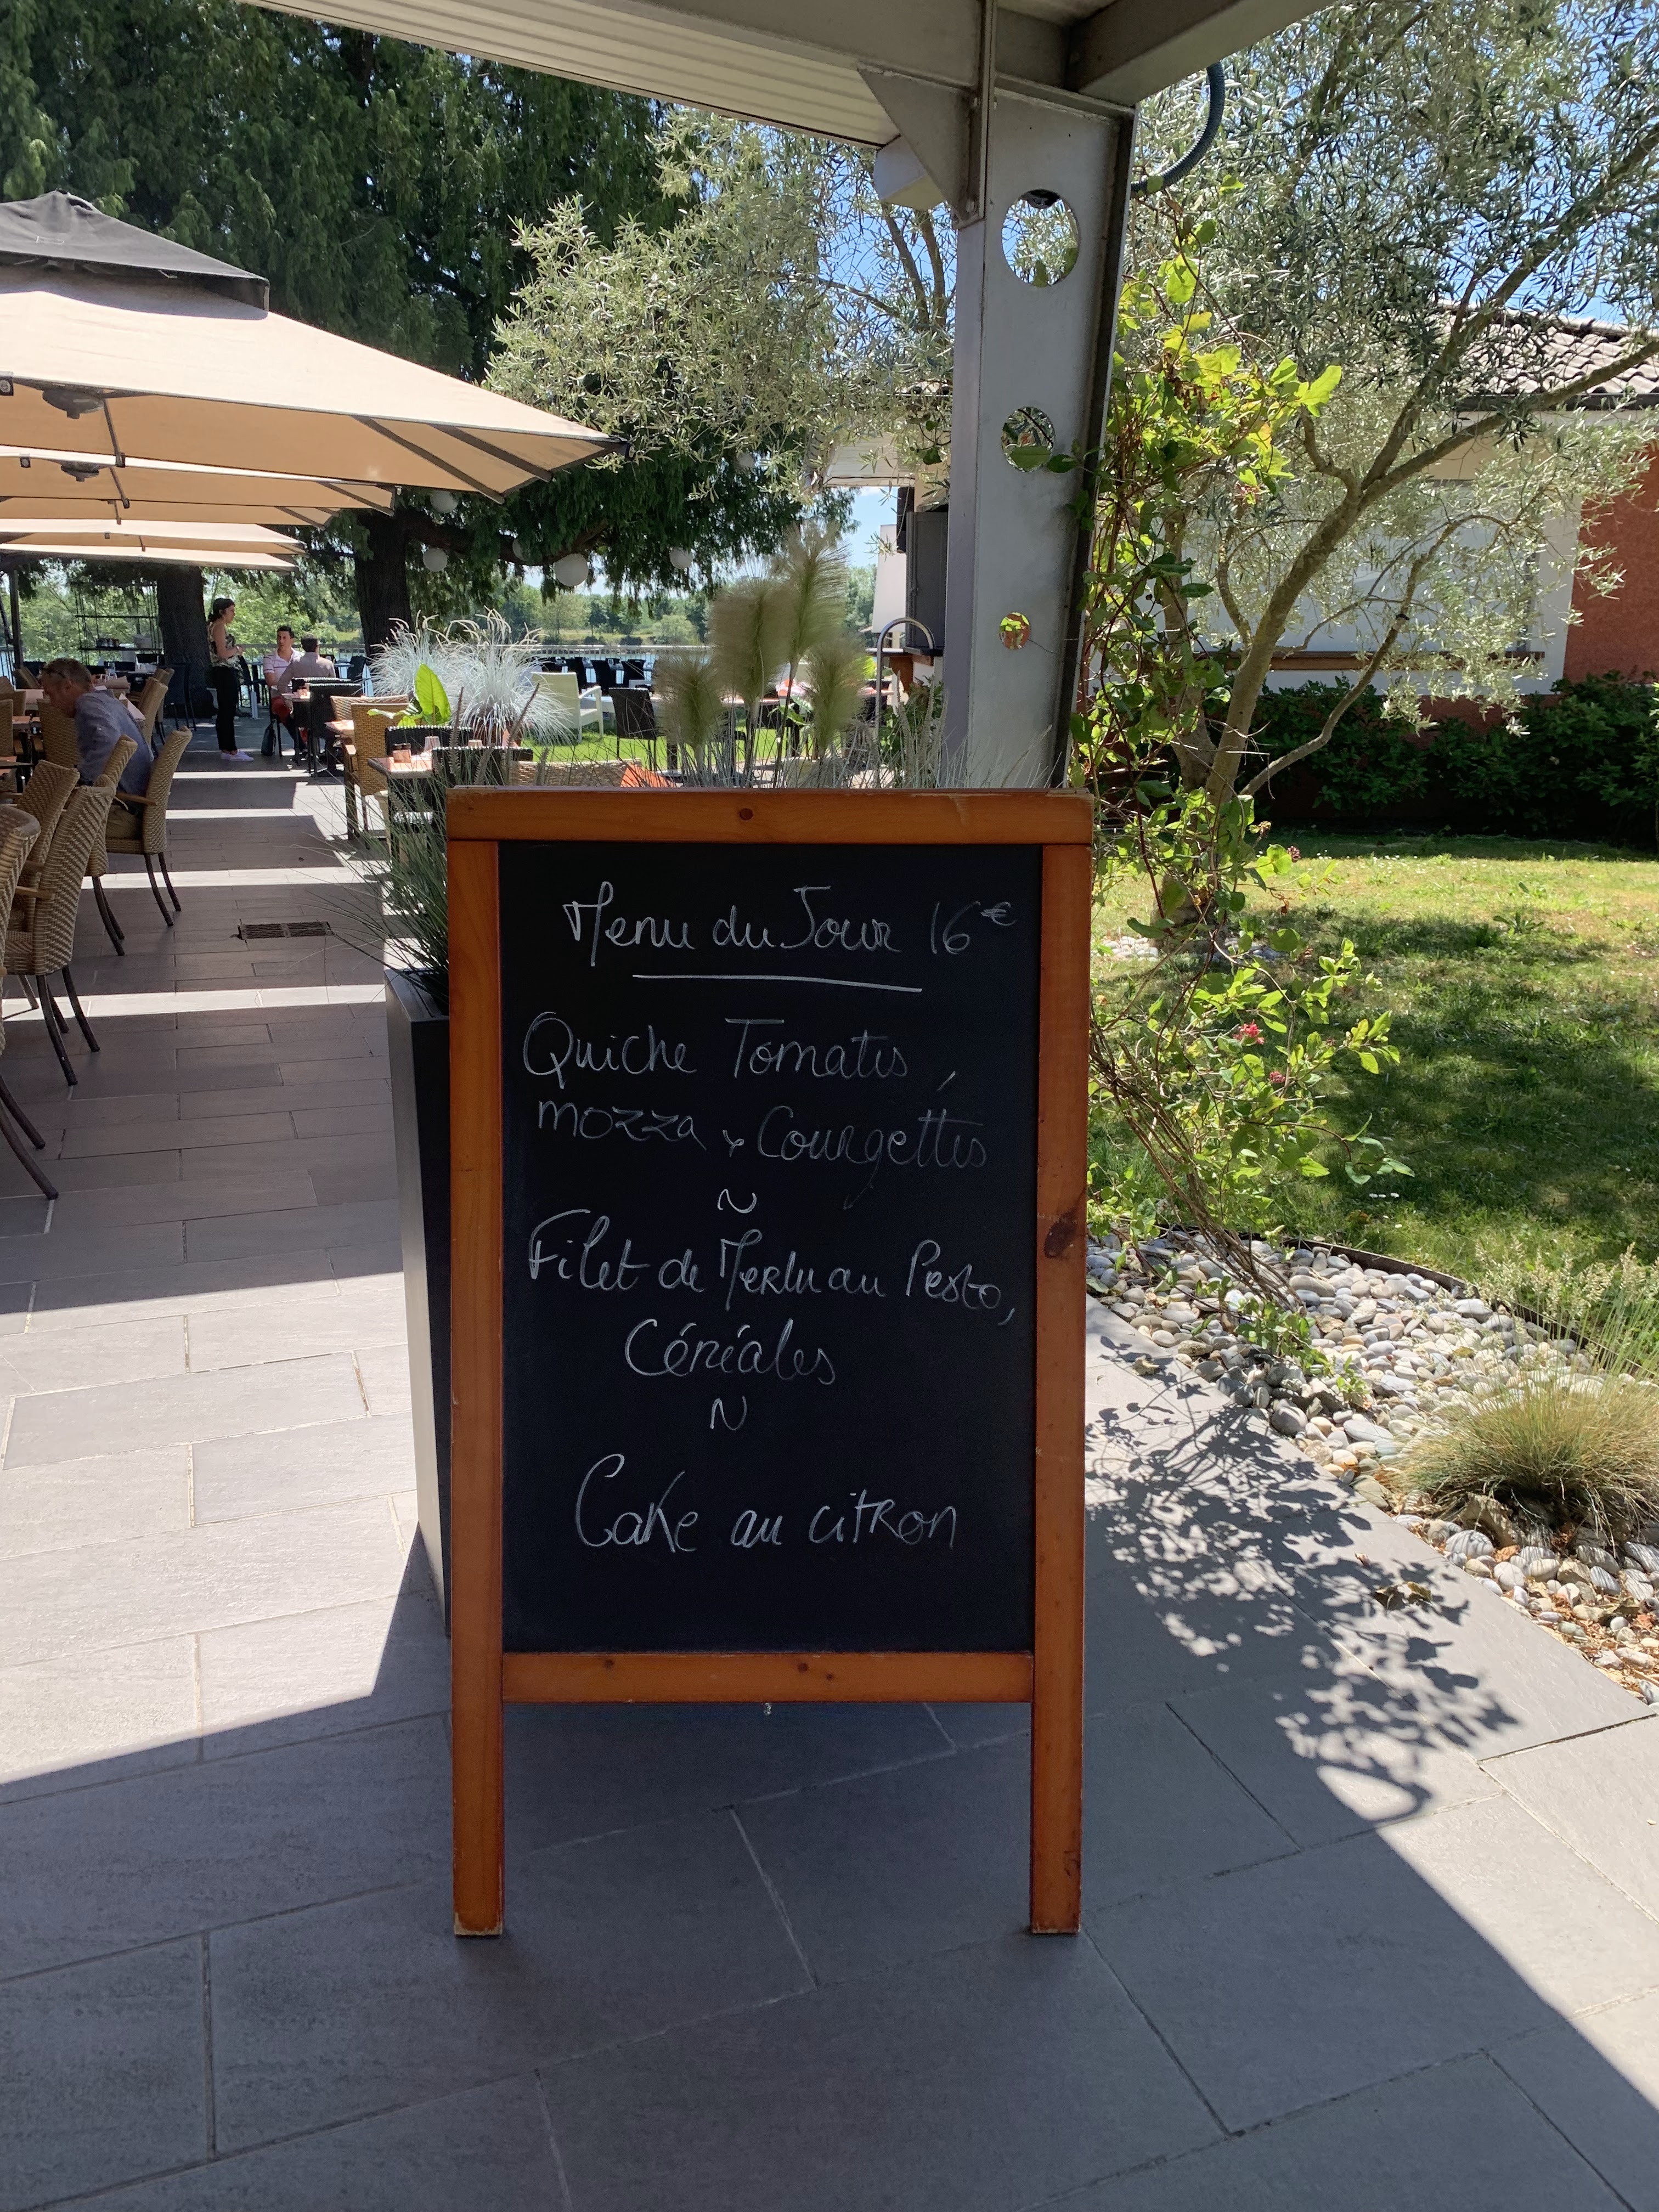 Menu du Jour 16€
Quiche Tomates,
mozza & Courgettes
~
Filet de Merlu au Pesto,
Céréales
~
Cake au citron